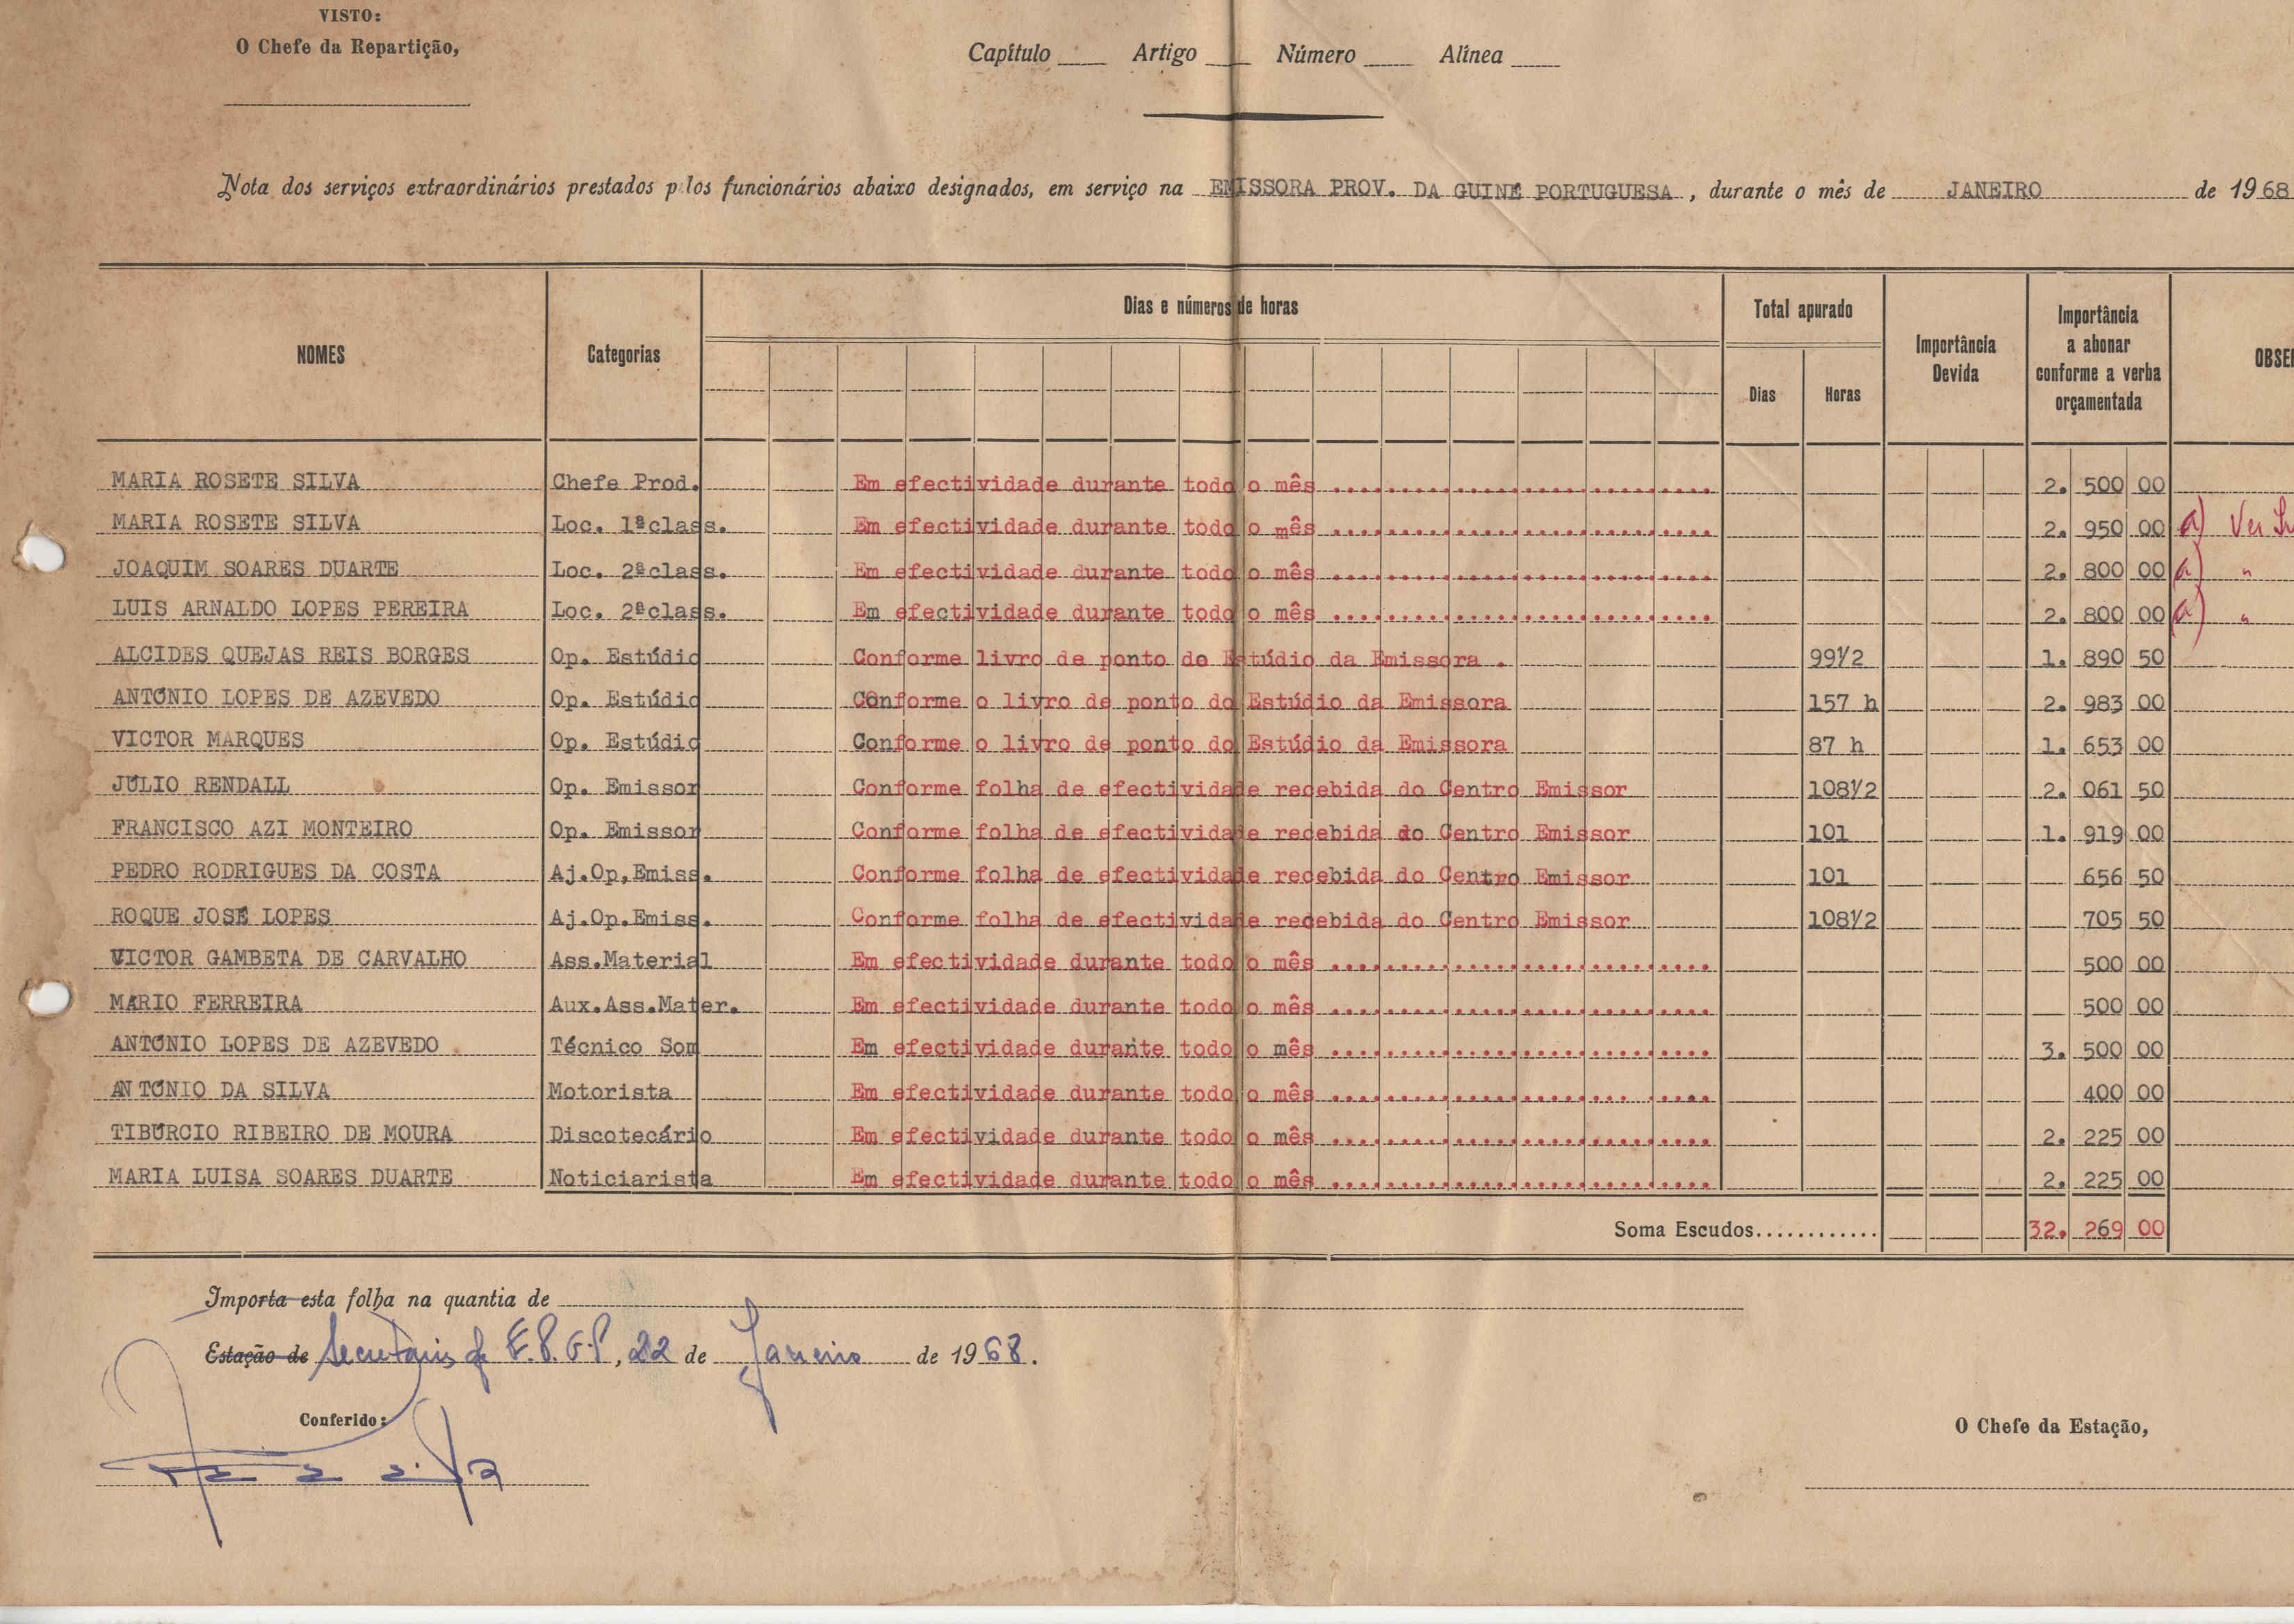 VISTO:
O Chefe da Repartição,
Capítulo Artigo Número Alínea
Nota dos serviços extraordinários prestados p los funcionários abaixo designados, em serviço na EMISSORA PROV. DA GUINÉ PORTUGUESA, durante o mês de JANEIRO de 1968
NOMES Categorias Dias e números de horas Total apurado Dias Horas Importância Devida Importância a abonar conforme a verba orçamentada
MARIA ROSETE SILVA Chefe Prod. Em efectividade durante todo o mês ............................ 2. 500 00
MARIA ROSETE SILVA Loc. 1ªclass. Em efectividade durante todo o mês ............................ 2. 950 00 a) Ver
JOAQUIM SOARES DUARTE Loc. 2ªclass. Em efectividade durante todo o mês ............................ 2. 800 00 a) "
LUIS ARNALDO LOPES PEREIRA Loc. 2ªclass. Em efectividade durante todo o mês ............................ 2. 800 00 a) "
ALCIDES QUEJAS REIS BORGES Op. Estúdio Conforme livro de ponto do Estúdio da Emissora . 99½ 1. 890 50
ANTÓNIO LOPES DE AZEVEDO Op. Estúdio Conforme o livro de ponto do Estúdio da Emissora 157 h 2. 983 00
VICTOR MARQUES Op. Estúdio Conforme o livro de ponto do Estúdio da Emissora 87 h 1. 653 00
JÚLIO RENDALL Op. Emissor Conforme folha de efectividade recebida do Centro Emissor 108½ 2. 061 50
FRANCISCO AZI MONTEIRO Op. Emissor Conforme folha de efectividade recebida do Centro Emissor 101 1. 919 00
PEDRO RODRIGUES DA COSTA Aj.Op.Emiss. Conforme folha de efectividade recebida do Centro Emissor 101 656 50
ROQUE JOSÉ LOPES Aj.Op.Emiss. Conforme folha de efectividade recebida do Centro Emissor 108½ 705 50
VICTOR GAMBETA DE CARVALHO Ass.Material Em efectividade durante todo o mês ............................ 500 00
MÁRIO FERREIRA Aux.Ass.Mater. Em efectividade durante todo o mês ............................ 500 00
ANTÓNIO LOPES DE AZEVEDO Técnico Som Em efectividade durante todo o mês ............................ 3. 500 00
ANTÓNIO DA SILVA Motorista Em efectividade durante todo o mês ...................... .... 400 00
TIBÚRCIO RIBEIRO DE MOURA Discotecário Em efectividade durante todo o mês ............................ 2. 225 00
MARIA LUISA SOARES DUARTE Noticiarista Em efectividade durante todo o mês ............................ 2. 225 00
Soma Escudos............ 32. 269 00
Importa esta folha na quantia de
Estação de Secretaria da E.P.G.P, 22 de Janeiro de 1968.
Conferido:
O Chefe da Estação,